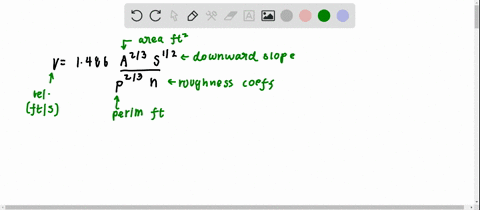 area ft²
V = 1.486 A^2/3 S^1/2 ← downward slope
p^2/3 n ← roughness coefs
vel.
(ft/s)
perim ft